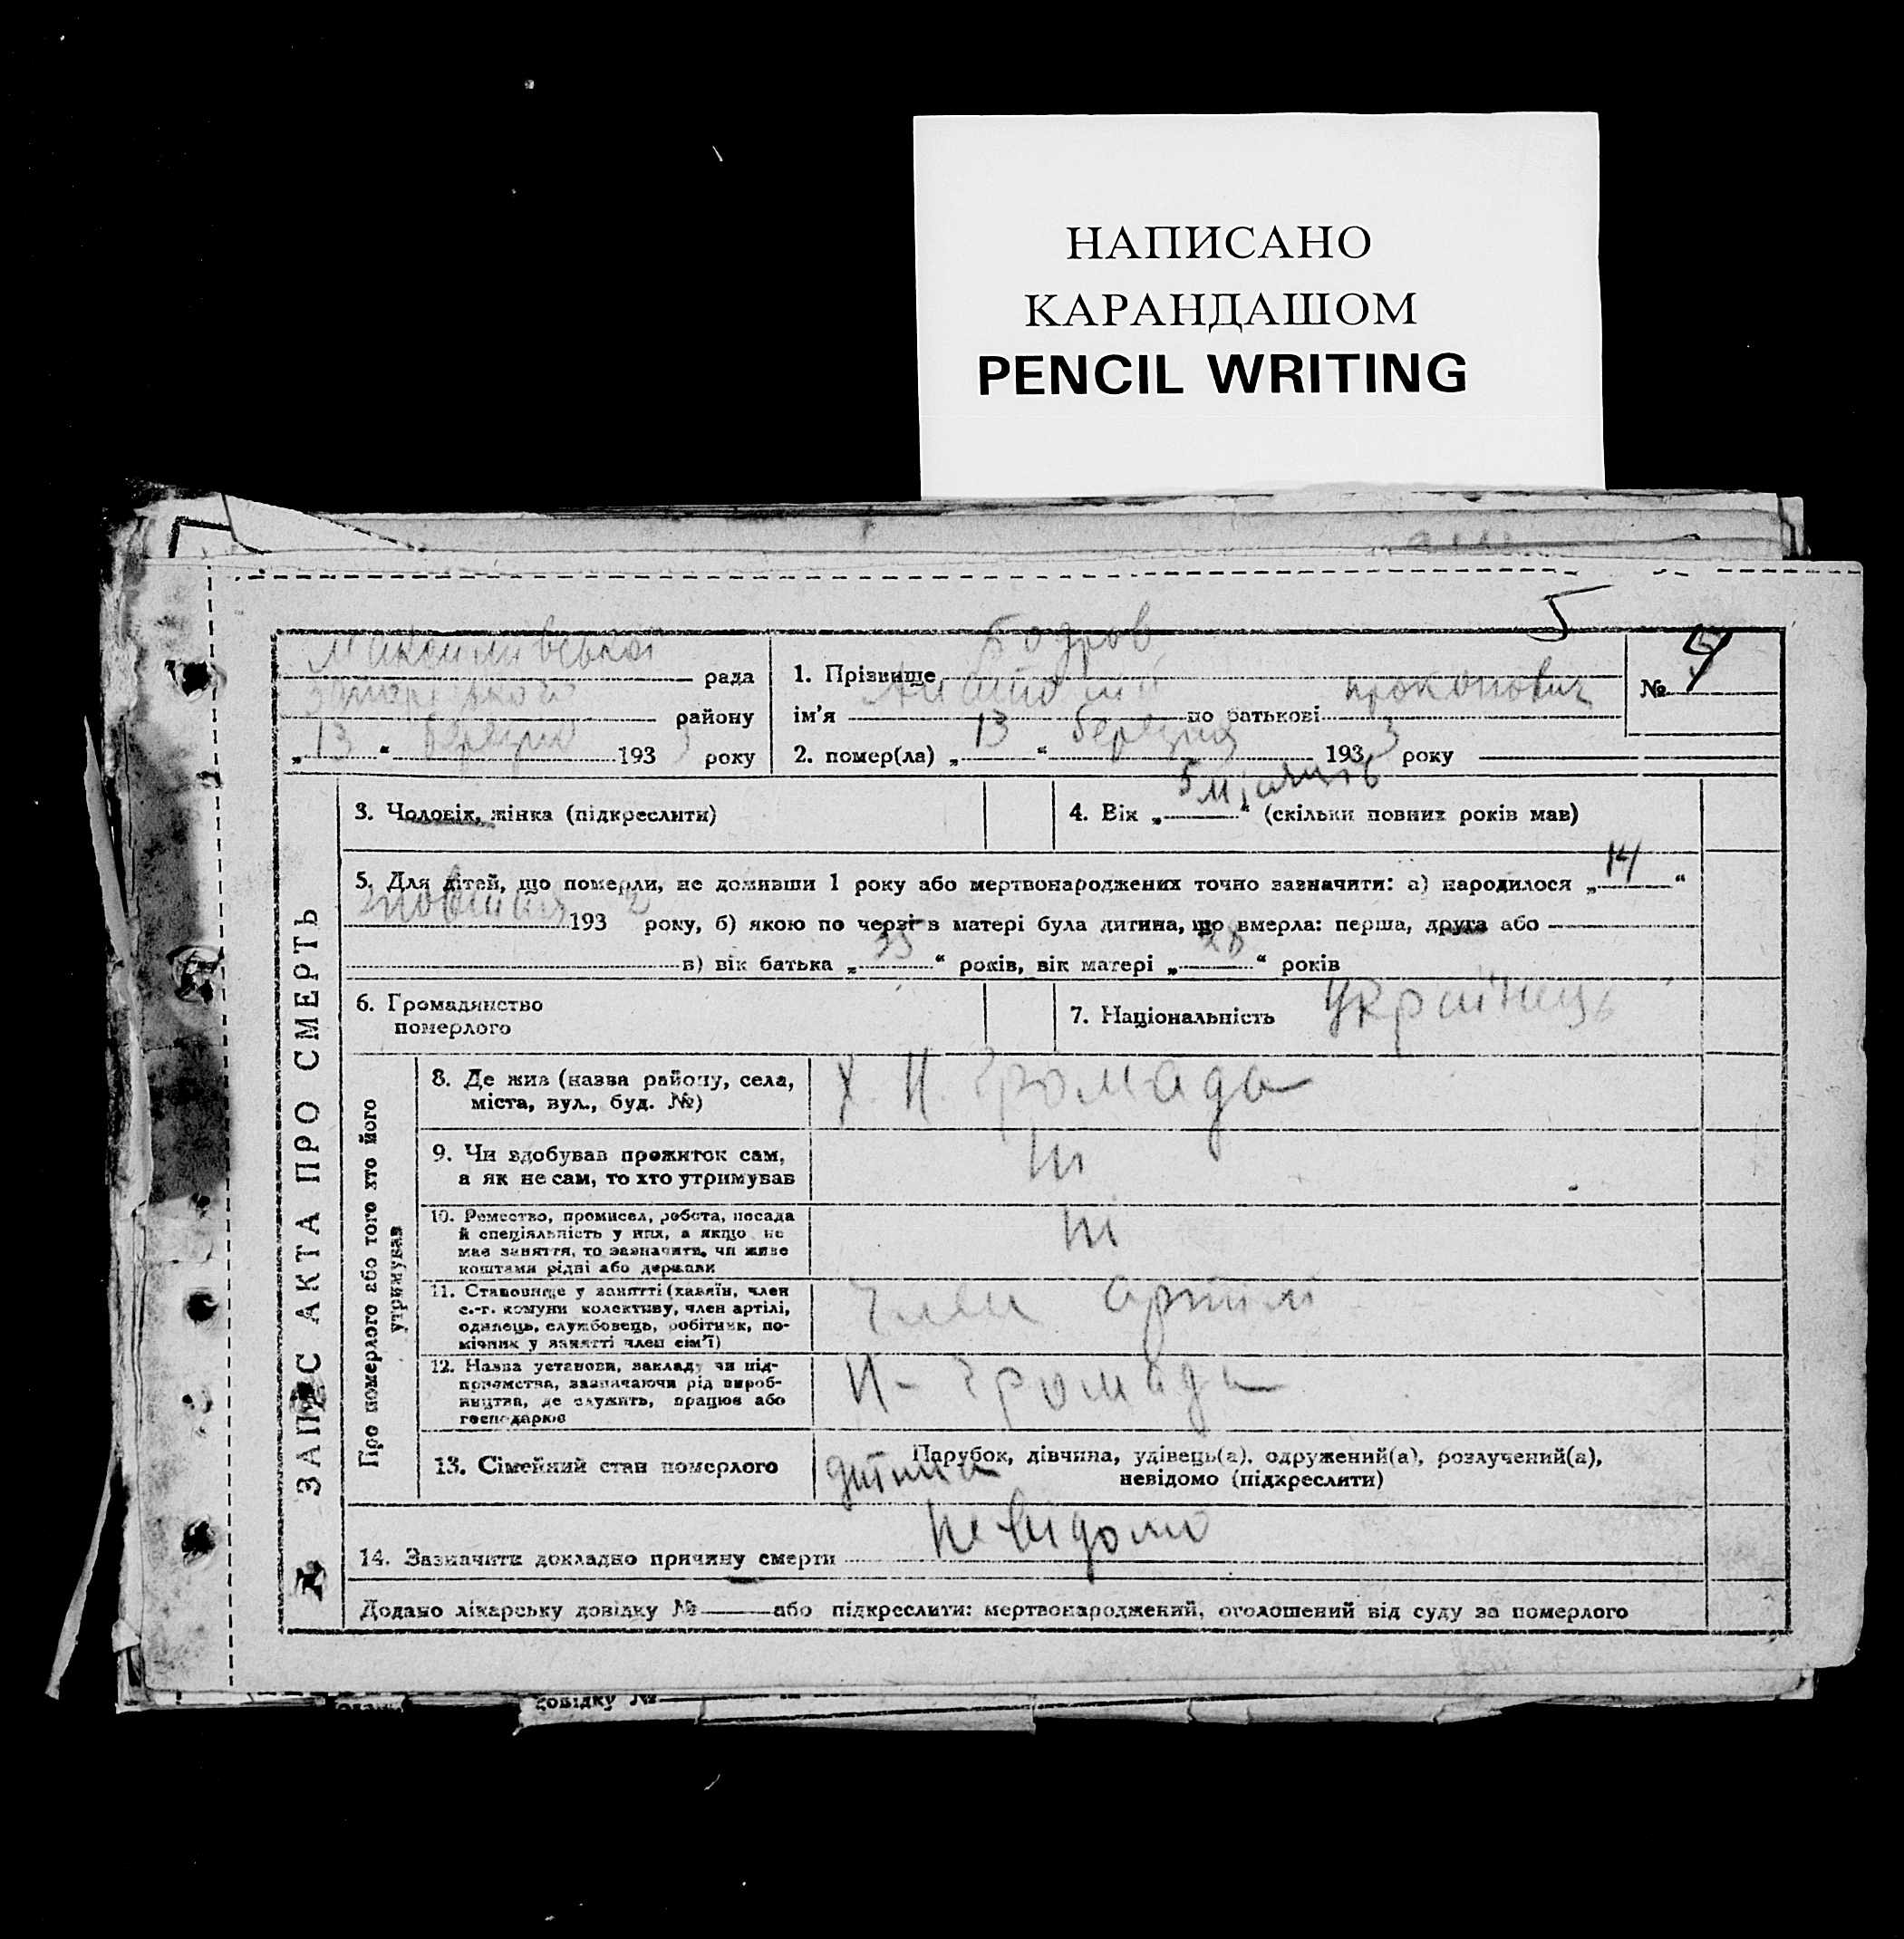 НАПИСАНО
КАРАНДАШОМ
PENCIL WRITING
5
рада
району
„13“ березня 193 3 року
1. Прізвище Бодров
ім'я Анатолій по батькові прокопович
2. помер(ла) „13“ березня 193 3 року
№ 4
ЗАПИС АКТА ПРО СМЕРТЬ
3. Чоловік, жінка (підкреслити)
4. Вік „5 місяців“ (скільки повних років мав)
5. Для дітей, що померли, не доживши 1 року або мертвонароджених точно зазначити: а) народилося „14“
жовтня 193 2 року, б) якою по черзі в матері була дитина, що вмерла: перша, друга або
в) вік батька „33“ років, вік матері „28“ років
6. Громадянство
померлого
7. Національність Українець
Про померлого або того хто його
утримував
8. Де жив (назва району, села,
міста, вул., буд. №)
Х. Н. Громада
9. Чи здобував прожиток сам,
а як не сам, то хто утримував
ні
10. Ремество, промисел, робота, посада
й спеціяльність у них, а якщо не
має заняття, то зазначити, чи живе
коштами рідні або держави
ні
11. Становище у занятті (хазяїн, член
с.-г. комуни колективу, член артілі,
одинець, службовець, робітник, по-
мічник у занятті член сім'ї)
Член артілі
12. Назва установи, закладу чи під-
приємства, зазначаючи рід вироб-
ництва, де служить, працює або
господарює
Н- Громада
13. Сімейний стан померлого
дитина
Парубок, дівчина, удівець(а), одружений(а), розлучений(а),
невідомо (підкреслити)
14. Зазначити докладно причину смерти невідомо
Додано лікарську довідку № або підкреслити: мертвонароджений, оголошений від суду за померлого
довідку №